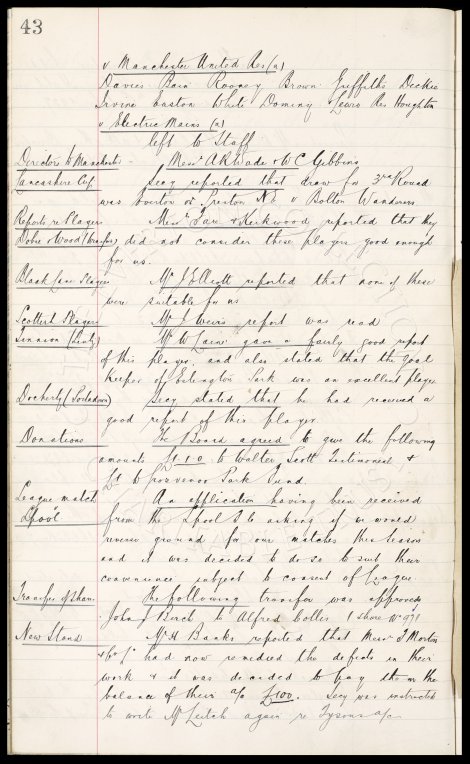 43
v Manchester United Res (a)
Davies Bain Rooney Brown Griffiths Dickie
Irvine Easton White Dominy Lewis Res Houghton
v Electric Mains (a)
left to Staff
Directors to Manchestr Messrs A R Wade & W C Gibbins
Lancashire Cup Secy reported that draw for 3rd Round
was Everton or Preston N.E. v Bolton Wanderers
Reports re Players Messrs Fare & Kirkwood reported that they
Dobie & Wood did not consider these players good enough
for us.
Blank Lane Player Mr J Elliott reported that none of these
were suitable for us
Scottish Players Mr J Weirs report was read
Mr W Cains gave a fairly good report
of this player, and also stated that the goal
Keeper of Eslington Park was an excellent player
Docherty (Portadown) Secy stated that he had received a
good report of this player.
Donations The Board agreed to give the following
amounts £1.1.0 to Walter Scott Testimonial, &
to Grosvenor Park Fund.
League match An application having been received
Lpool from the Lpool F.C. asking if we would
reverse ground for our matches this season
and it was decided to do so to suit their
convenience subject to consent of League.
Transfer of Shares The following transfer was approved
John J Birch to Alfred Coller 1 share No
New Stand Mr H Banks reported that Messrs F Morton
& Co Ld had now remedied the defects in their
work & it was decided to pay them the
balance of their a/c £100. Secy was instructed
to write Mr Leitch again re Tysons a/c